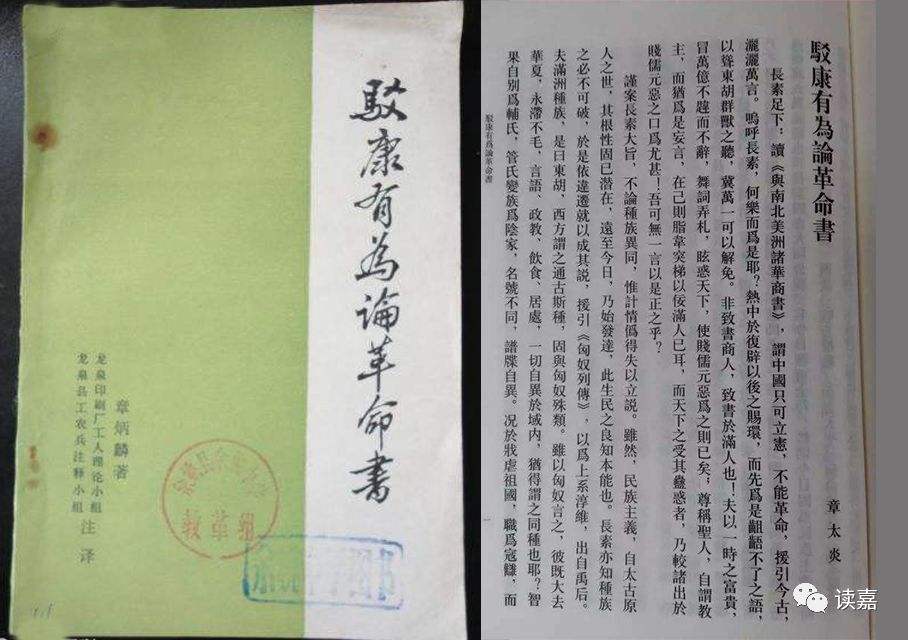 駁康有為論革命書
章炳麟著
龙泉印刷厂工人理论小组
龙泉县工农兵注释小组
注译
教革组
駁康有為論革命書
章太炎
長素足下：讀《與南北美洲諸華商書》，謂中國只可立憲，不能革命，援引今古，
灑灑萬言。嗚呼長素，何樂而爲是耶？熱中於復辟以後之賜環，而先爲是齟齬不了之語，
以聳東胡群獸之聽，冀萬一可以解免。非致書商人，致書於滿人也！夫以一時之富貴，
冒萬億不韙而不辭，舞詞弄札，眩惑天下，使賤儒元惡爲之則已矣；尊稱聖人，自謂教
主，而猶爲是妄言，在己則脂韋突梯以佞滿人已耳，而天下之受其蠱惑者，乃較諸出於
賤儒元惡之口爲尤甚！吾可無一言以是正之乎？
謹案長素大旨，不論種族異同，惟計情僞得失以立說。雖然，民族主義，自太古原
人之世，其根性固已潛在，遠至今日，乃始發達，此生民之良知本能也。長素亦知種族
之必不可破，於是依違遷就以成其説，援引《匈奴列傳》，以爲上系淳維，出自禹后。
夫滿洲種族，是曰東胡，西方謂之通古斯種，固與匈奴殊類。雖以匈奴言之，彼既大去
華夏，永滯不毛，言語、政教、飲食、居處，一切自異於域内，猶得謂之同種也耶？智
果自别爲輔氏，管氏變族爲陰家，名號不同，譜牒自異。况於戕虐祖國，職爲寇讎，而
駁康有爲論革命書
一
读嘉